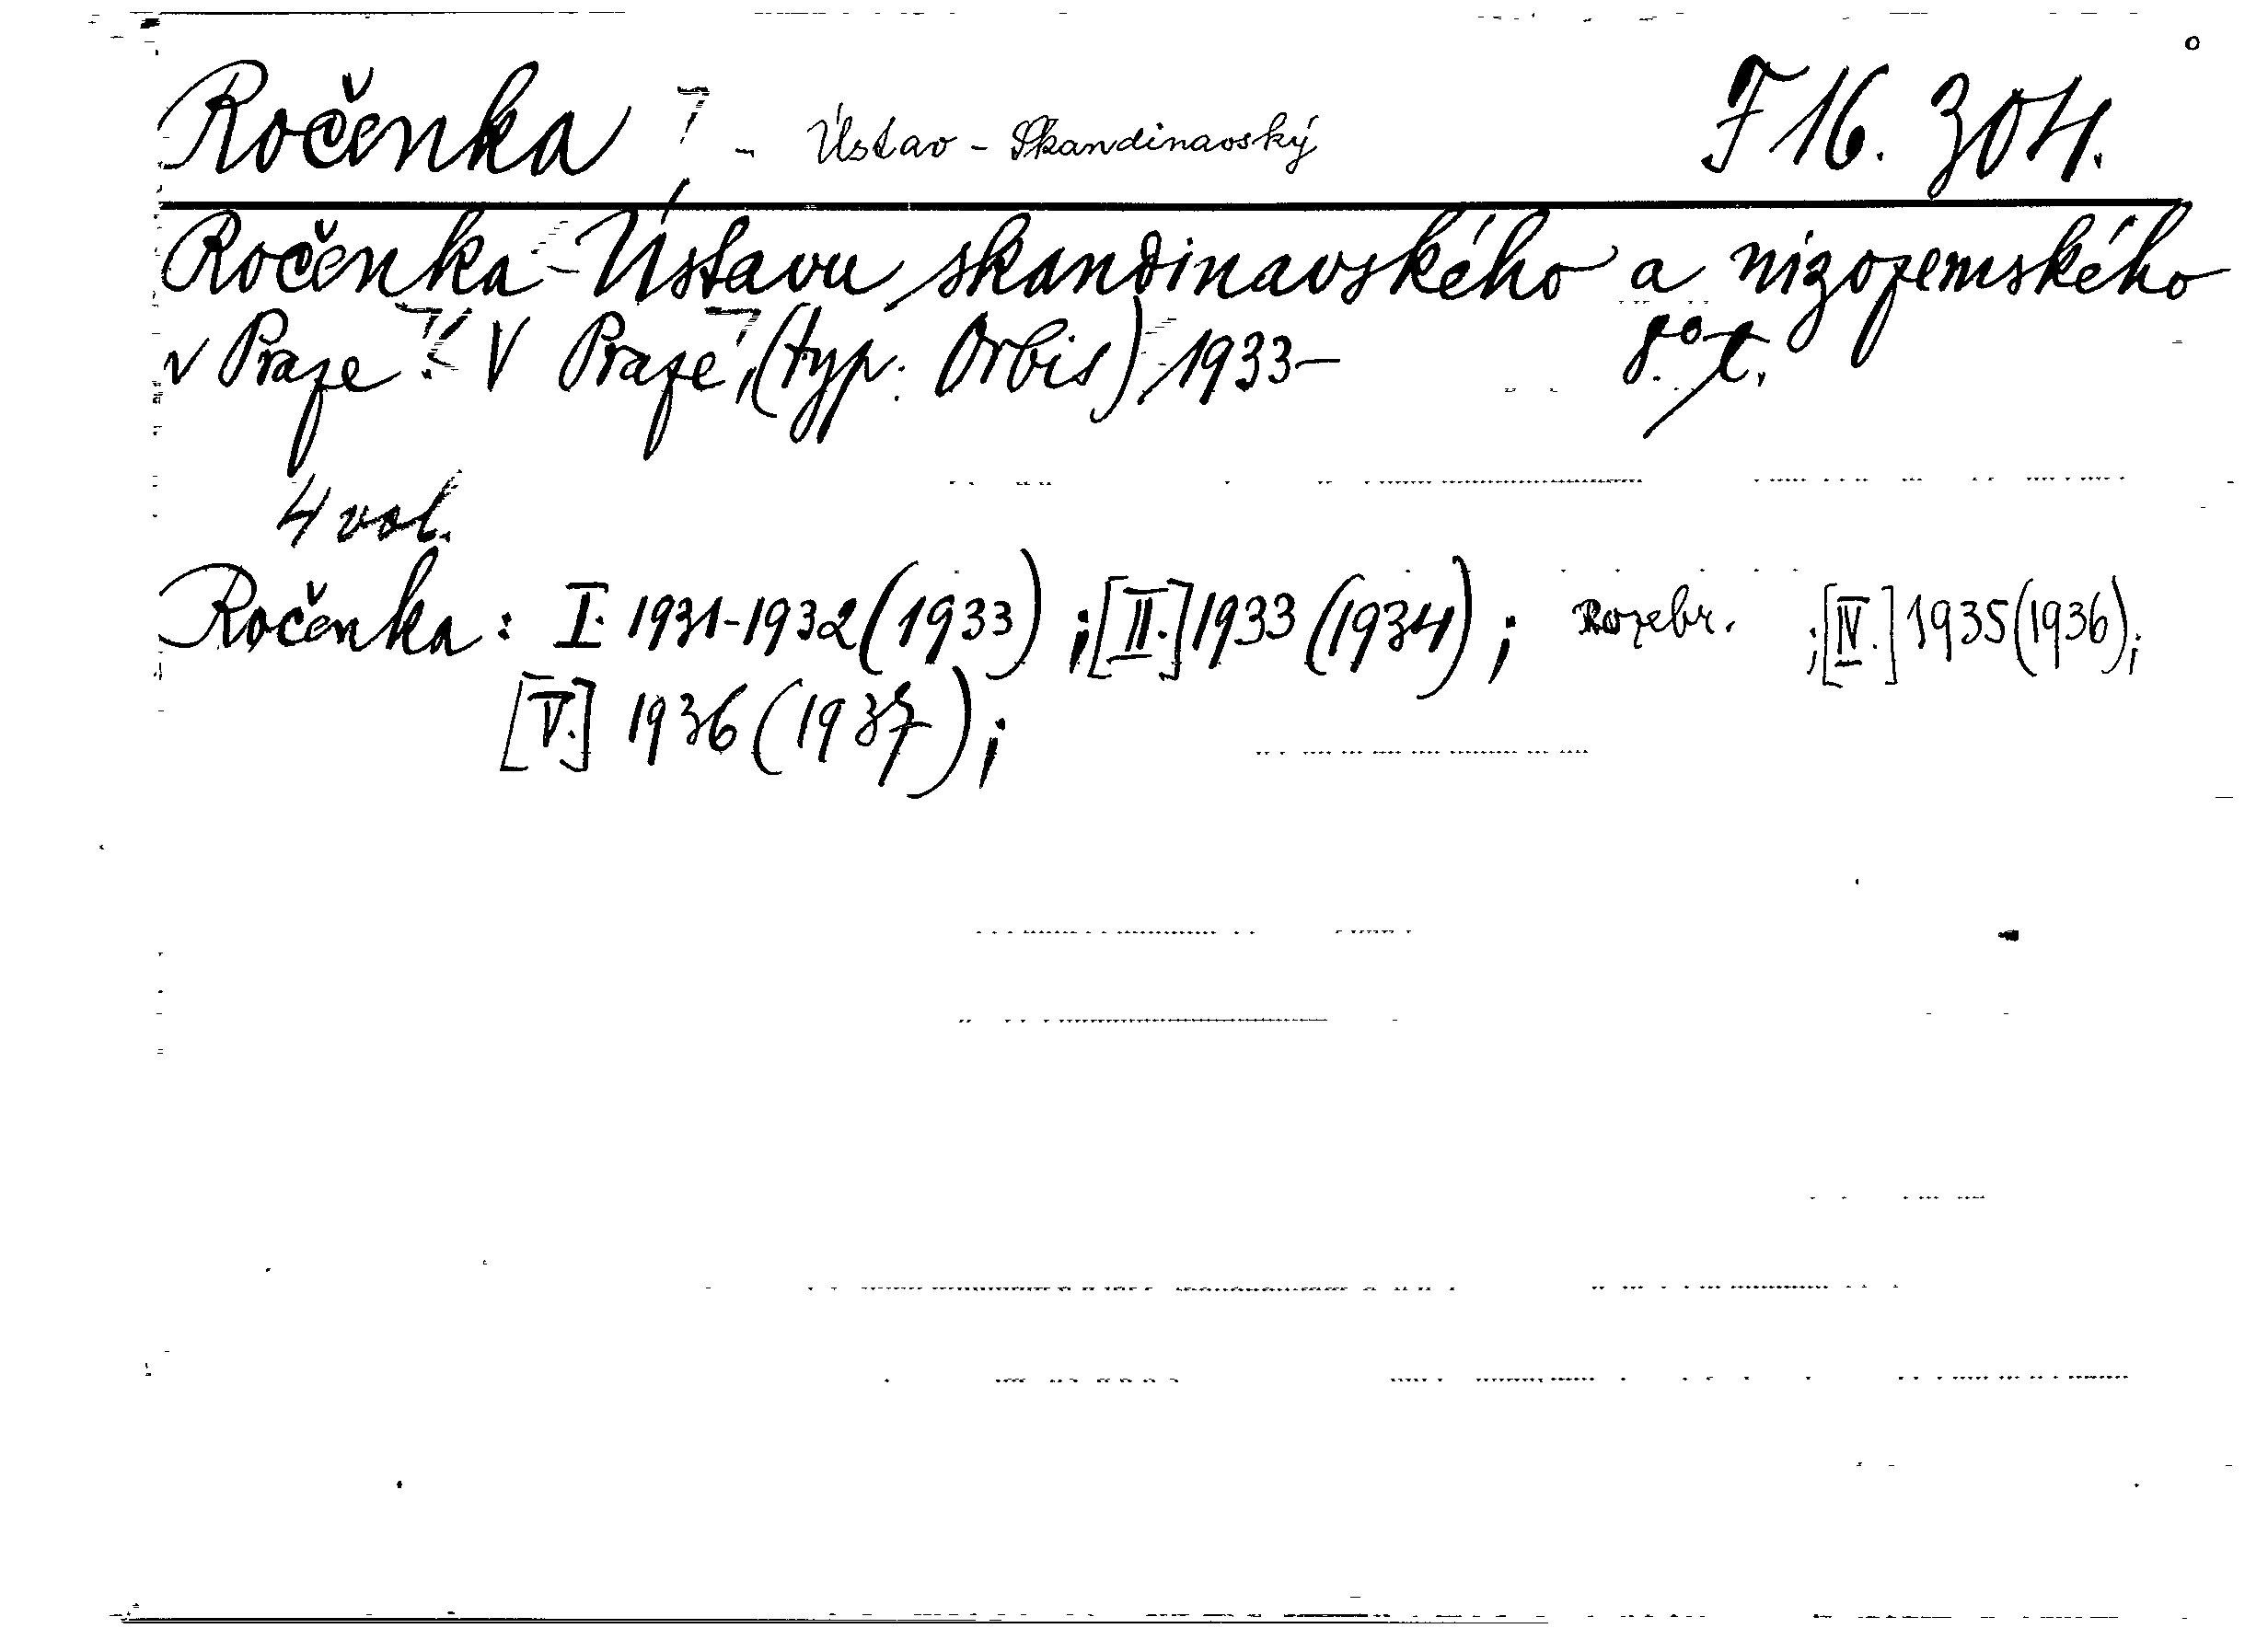 Ročenka - Ústav - Skandinavský F 16. 304.
Ročenka Ústavu skandinavského a nizozemského
v Praze. V Praze, (typ. Orbis), 1933- 8.° t.
4 vol.
Ročenka: I. 1931-1932 (1933); [II.] 1933 (1934); Rozebr. ; [IV.] 1935 (1936);
[V.] 1936 (1937);